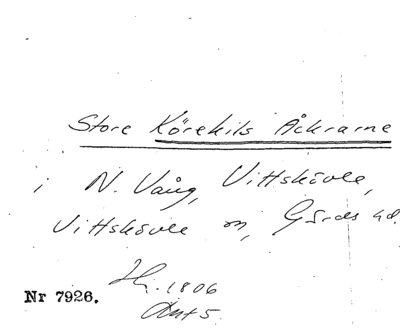 Store Körekils Åkrarne
i N. Vång, Vittskövle,
Vittskövle sn, Gärds hd.
1806
Nr 7926.
Akt 5.